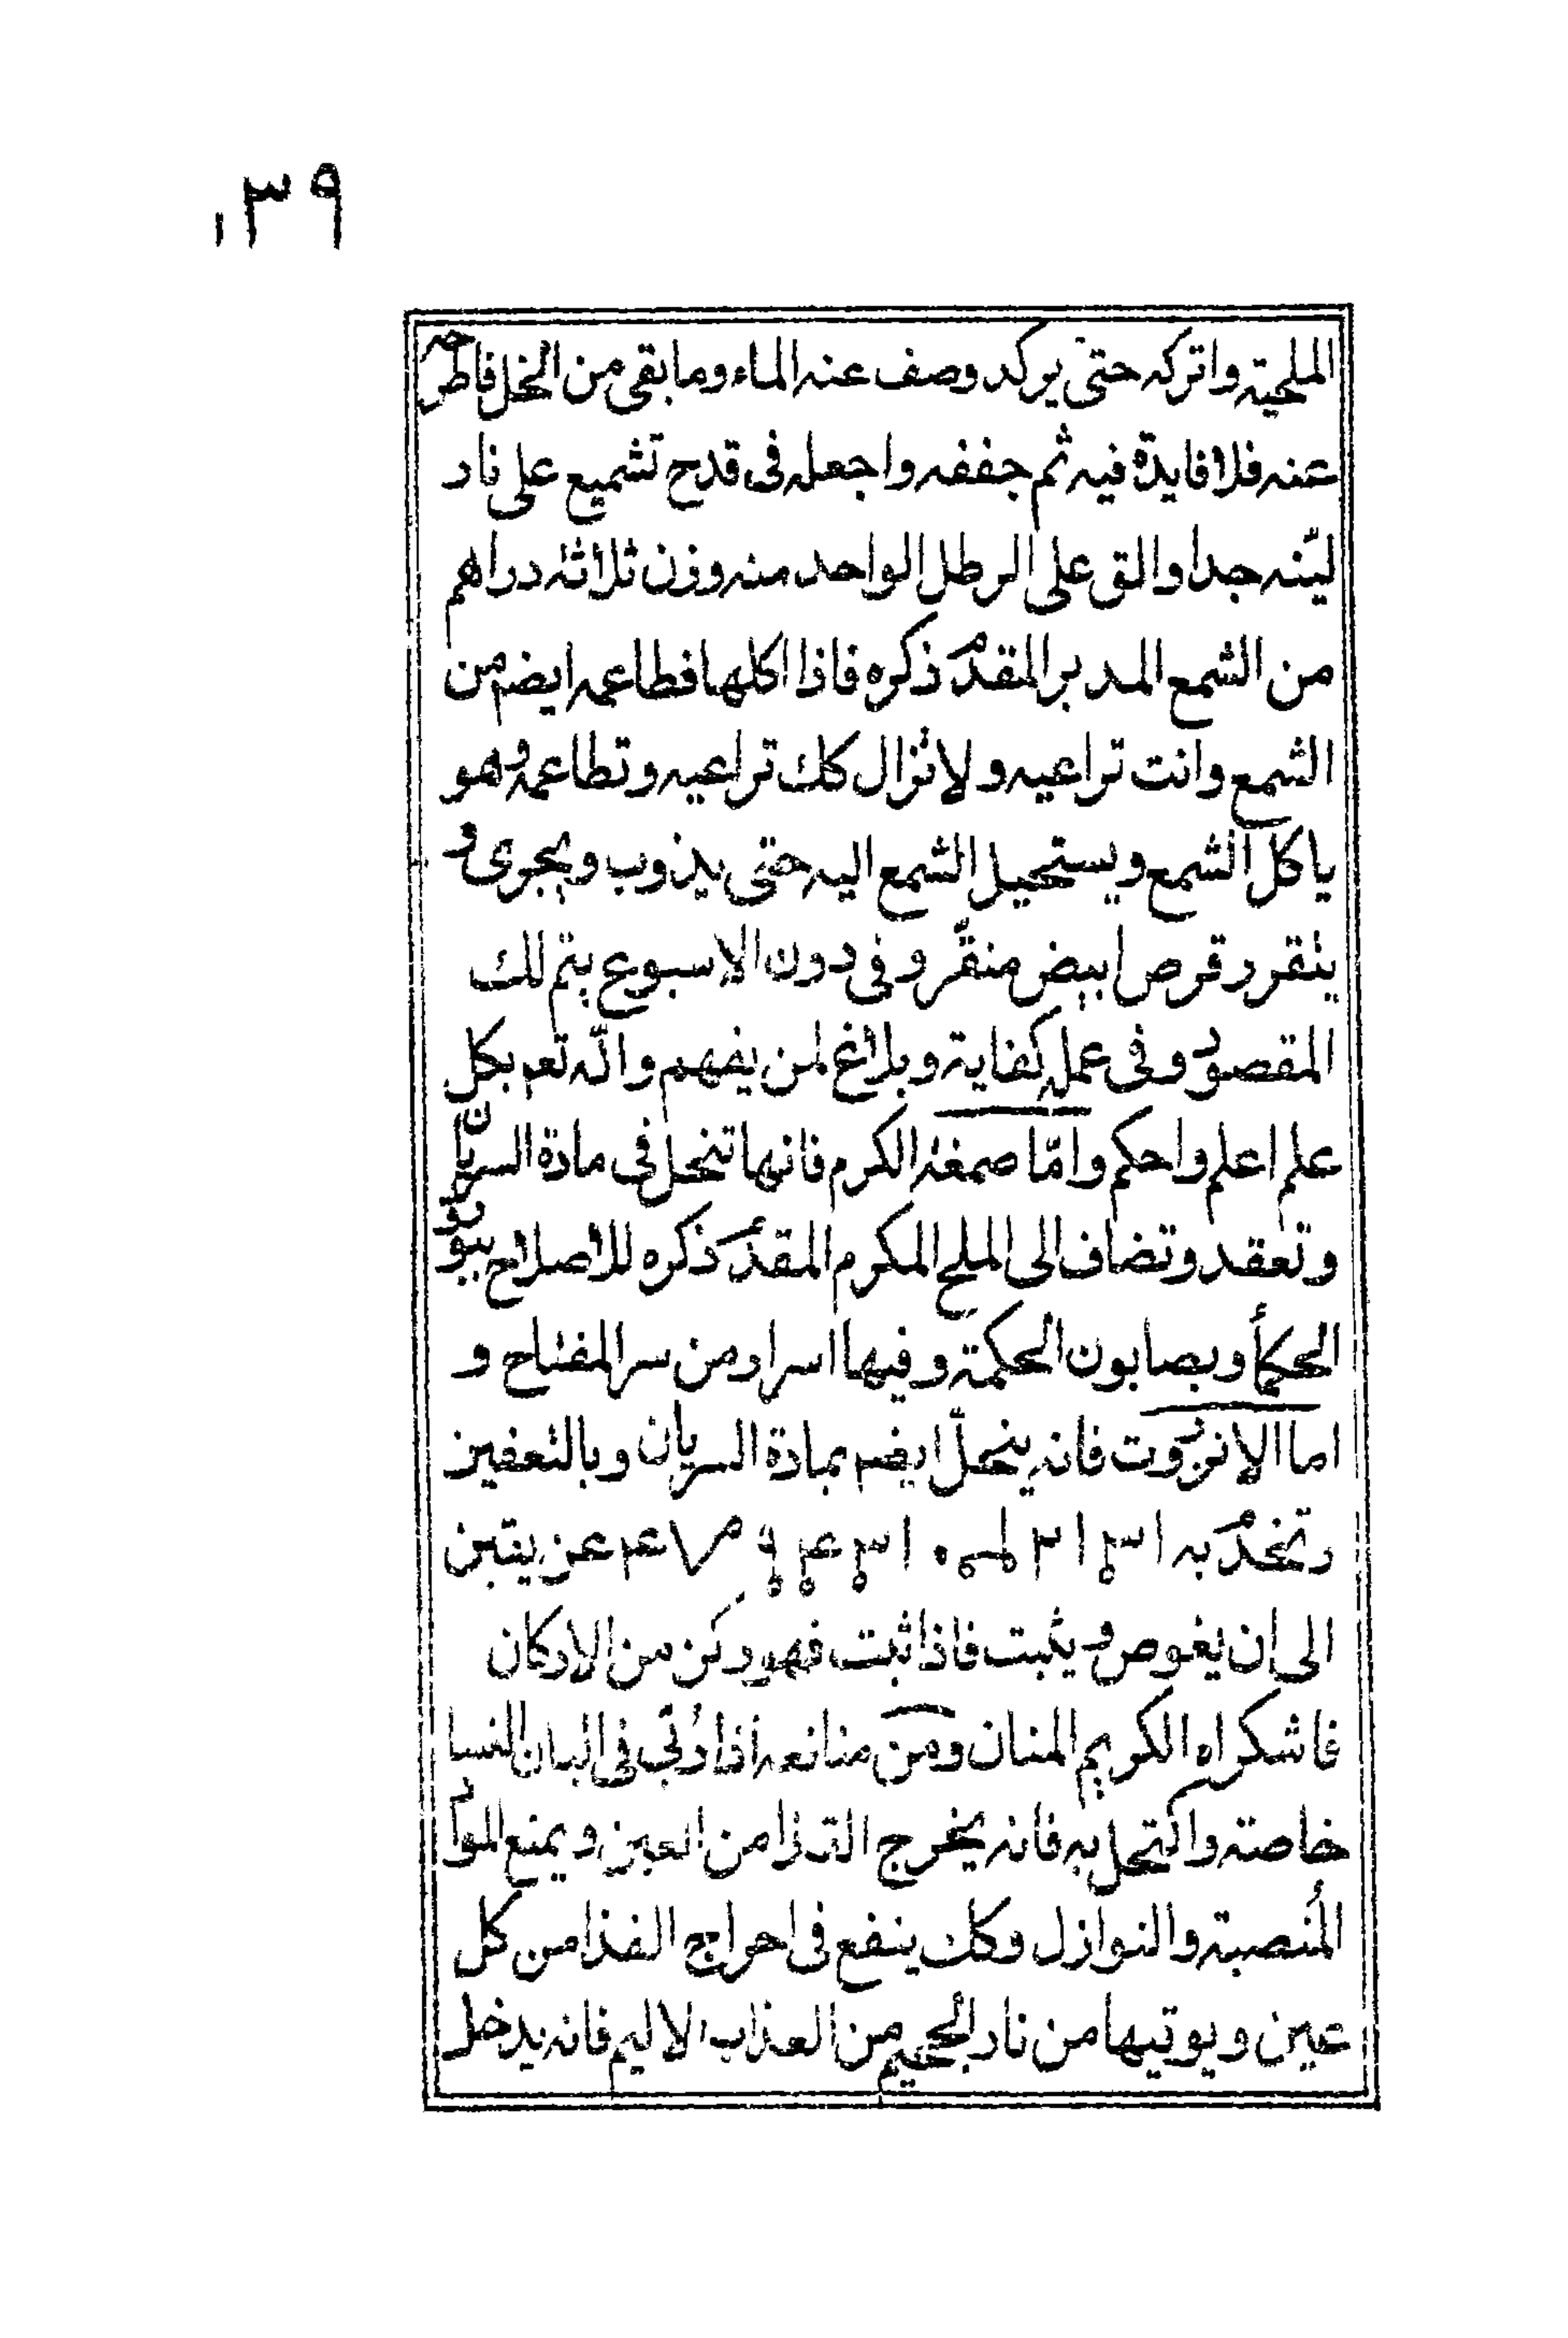 ١٣٩
الملحية واتركه حتى يركد وصف عنه الماء وما بقى من الخل فاطرحه
عنه فلا فايدة فيه ثم جففه واجعله فى قدح تشميع على نار
ليّنه جدا والق على الرطل الواحد منه وزن ثلاثة دراهم
من الشمع المدبر المقدم ذكره فاذا اكلها فطاعمه ايضم من
الشمع وانت تراعيه ولا تزال كك تراعيه وتطاعمه وهو
ياكل الشمع ويستحيل الشمع اليه حتى يذوب ويجرى و
يتقرر قرص ابيض منقّر وفى دون الاسبوع يتم لك
المقصود وفى عمله كفاية وبلاغ لمن يفهم والله تعم بكل
علم اعلم واحكم وامّا صمغة الكرم فانها تنحل فى مادة السريان
وتعقد وتضاف الى الملح المكرم المقدم ذكره للاصلاح ببورق
الحكمأ وبصابون الحكمة وفيها اسرار من سر المفتاح و
اما الانزروت فانه ينحلّ ايضم بمادة السريان وبالتعفين
وتخدم به عن يتين
الى ان يغوص ويثبت فاذا ثبت فهو ركن من الاركان
فاشكر اه الكريم المنان ومن منافعه اذا رُبّى فى البان النسا
خاصة واكتحل به فانه يخرج القذا من العين ويمنع المواد
المُنصبة والنوازل وكك ينفع فى اخراج القذا من كل
عين ويوتيها من نار الجحيم من العذاب الاليم فانه يدخل